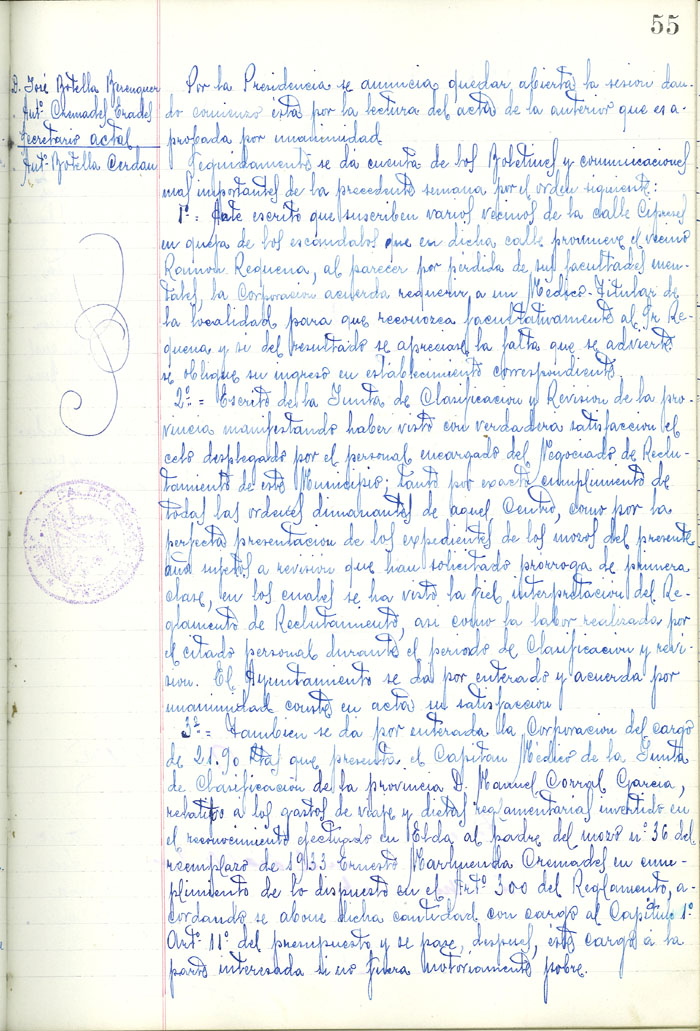 55
D. José Botella Berenguer
" Antº Cremades Erades
Secretario actal
" Antº Botella Cerdan
Por la Presidencia se anuncia quedar abierta la sesion dan-
do comienzo esta por la lectura del acta de la anterior que es a-
probada por unanimidad
Seguidamente se da cuenta de los Boletines y comunicaciones
mas importantes de la precedente semana por el orden siguiente:
1º = Ante escrito que suscriben varios vecinos de la calle Cipreses
en queja de los escandalos que en dicha calle promueve el vecino
Ramon Requena, al parecer por pérdida de sus facultades men-
tales, la Corporacion acuerda requerir a un Medico-Titular de
la localidad para que reconozca facultativamente al Sr Re-
quena y si del resultado se apreciase la falta que se advierte
se obligue su ingreso en establecimiento correspondiente.
2º = Escrito de la Junta de Clasificacion y Revision de la pro-
vincia manifestando haber visto con verdadera satisfaccion el
celo desplegado por el personal encargado del Negociado de Reclu-
tamiento de este Municipio; tanto por exacto cumplimiento de
todas las ordenes dimanantes de aquel Centro, como por la
perfecta presentacion de los expedientes de los mozos del presente
año sujetos a revision que han solicitado prorroga de primera
clase, en los cuales se ha visto la fiel interpretacion del Re-
glamento de Reclutamiento, asi como la labor realizada por
el citado personal durante el periodo de Clasificacion y revi-
sion. El Ayuntamiento se da por enterado y acuerda por
unanimidad conste en acta su satisfaccion
3º = Tambien se da por enterada la Corporacion del cargo
de 21.90 Ptas que presenta el Capitan Médico de la Junta
de Clasificación de la provincia D. Manuel Corral Garcia,
relativo a los gastos de viaje y dietas reglamentarias invertido en
el reconocimiento efectuado en Elda al padre del mozo nº 36 del
reemplazo de 1933 Ernesto Marhuenda Cremades en cum-
plimiento de lo dispuesto en el Artº 300 del Reglamento, a-
cordando se abone dicha cantidad con cargo al Capitulo 1º
Artº 11º del presupuesto y se pase, despues, este cargo a la
parte interesada si no fuera notoriamente pobre.